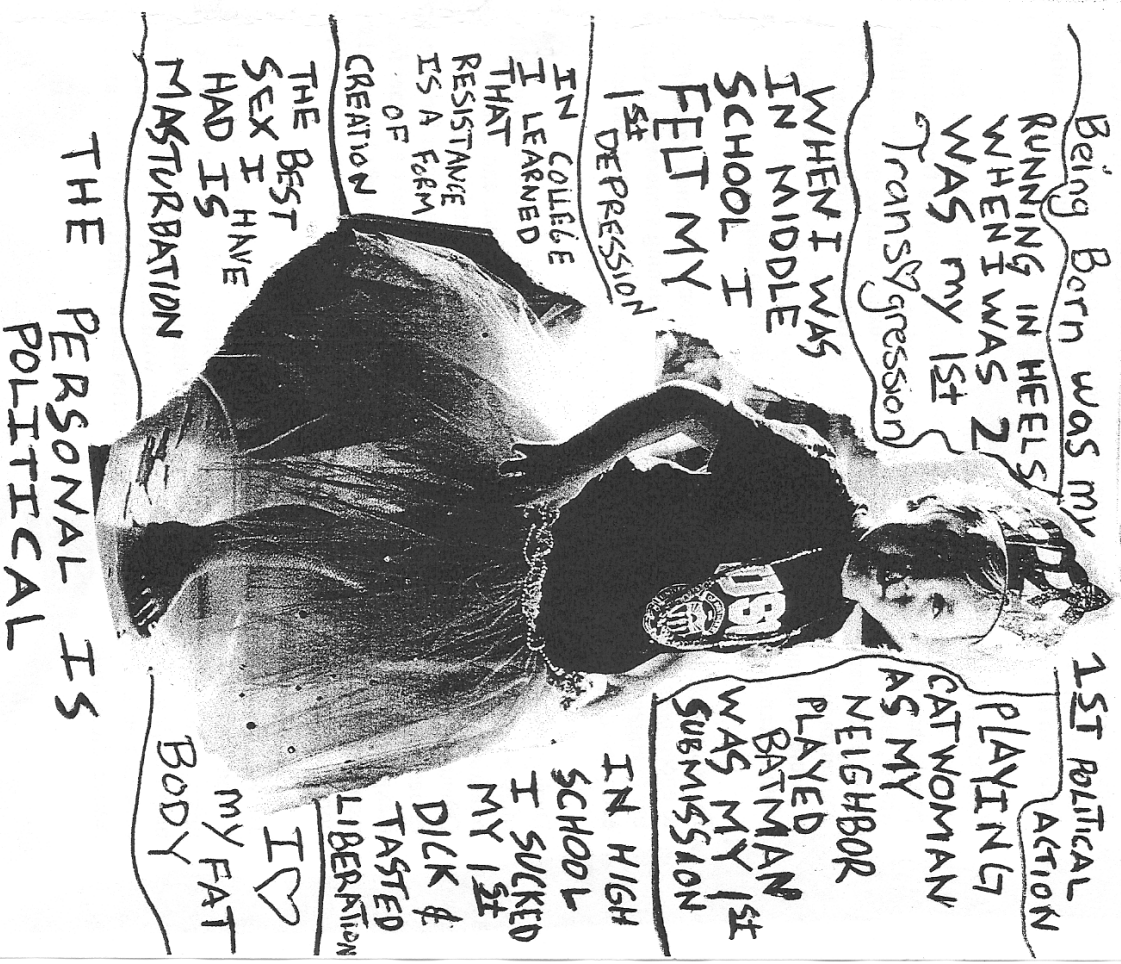 Being Born was my
1ST POLITICAL
ACTION
RUNNING IN HEELS
WHEN I WAS 2
WAS my 1st
Trans♡gression
PLAYING
CATWOMAN
AS MY
NEIGHBOR
PLAYED
BATMAN
WAS MY 1st
SUBMISSION
WHEN I WAS
IN MIDDLE
SCHOOL I
FELT MY
1st DEPRESSION
IN HIGH
SCHOOL
I SUCKED
MY 1st
DICK &
TASTED
LIBERATION
IN COLLEGE
I LEARNED
THAT
RESISTANCE
IS A FORM
OF
CREATION
I ♡
MY FAT
BODY
THE BEST
SEX I HAVE
HAD IS
MASTURBATION
THE PERSONAL IS
POLITICAL